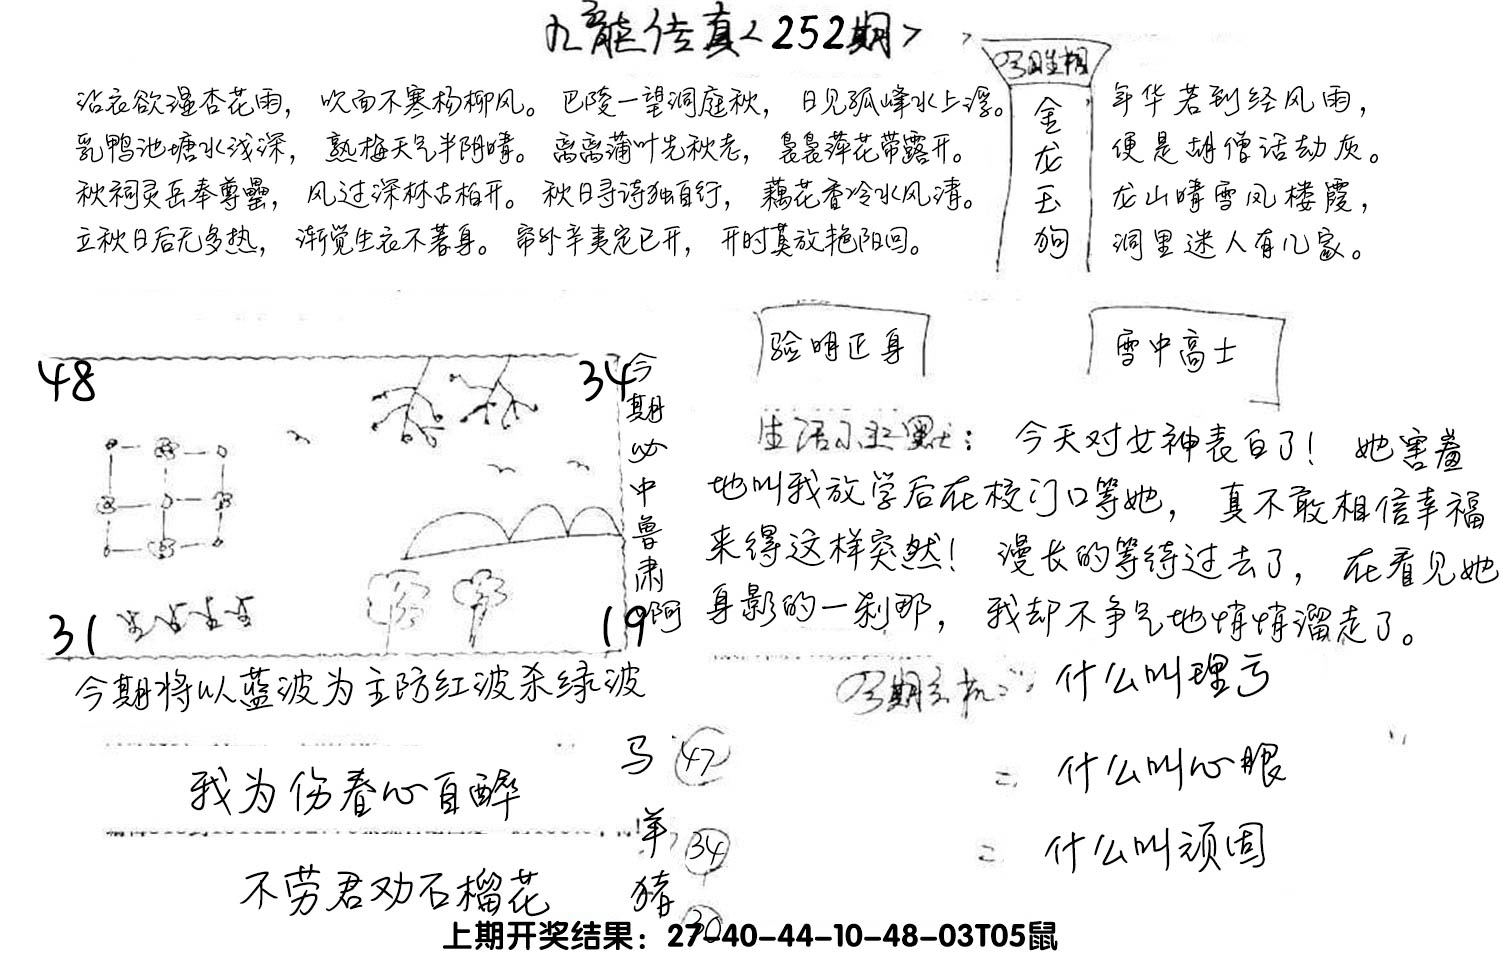 九龙传真<252期>
沾衣欲湿杏花雨，吹面不寒杨柳风。巴陵一望洞庭秋，日见孤峰水上浮。
乳鸭池塘水浅深，熟梅天气半阴晴。离离蒲叶先秋老，袅袅萍花带露开。
秋祠灵岳奉尊罍，风过深林古柏开。秋日寻诗独自行，藕花香冷水风清。
立秋日后无多热，渐觉生衣不著身。帘外辛夷定已开，开时莫放艳阳回。
今期生相
金龙玉狗
年华若到经风雨，
便是胡僧话劫灰。
龙山晴雪凤楼霞，
洞里迷人有几家。
48
34
31
19
今期必中鲁肃阿
今期将以蓝波为主防红波杀绿波
验明正身
雪中高士
生活小幽默：今天对女神表白了！她害羞
地叫我放学后在校门口等她，真不敢相信幸福
来得这样突然！漫长的等待过去了，在看见她
身影的一刹那，我却不争气地悄悄溜走了。
今期玄机：什么叫理亏
什么叫心眼
什么叫顽固
我为伤春心自醉
不劳君劝石榴花
马 47
羊 34
猪 30
上期开奖结果：27-40-44-10-48-03T05鼠